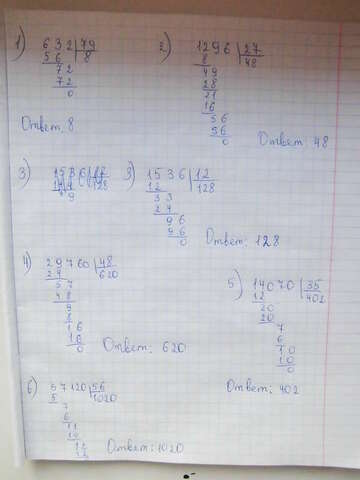 1) 632 | 79
56 | 8
72
72
0
Ответ: 8
2) 1296 | 27
8 | 48
49
28
21
16
56
56
0
Ответ: 48
3)
3) 1536 | 12
12 | 128
33
24
96
96
0
Ответ: 128
4) 29760 | 48
24 | 620
57
48
9
8
16
16
0
Ответ: 620
5) 14070 | 35
12 | 402
20
20
7
6
10
10
0
Ответ: 402
6) 57120 | 56
5 | 1020
7
6
11
10
12
12
Ответ: 1020